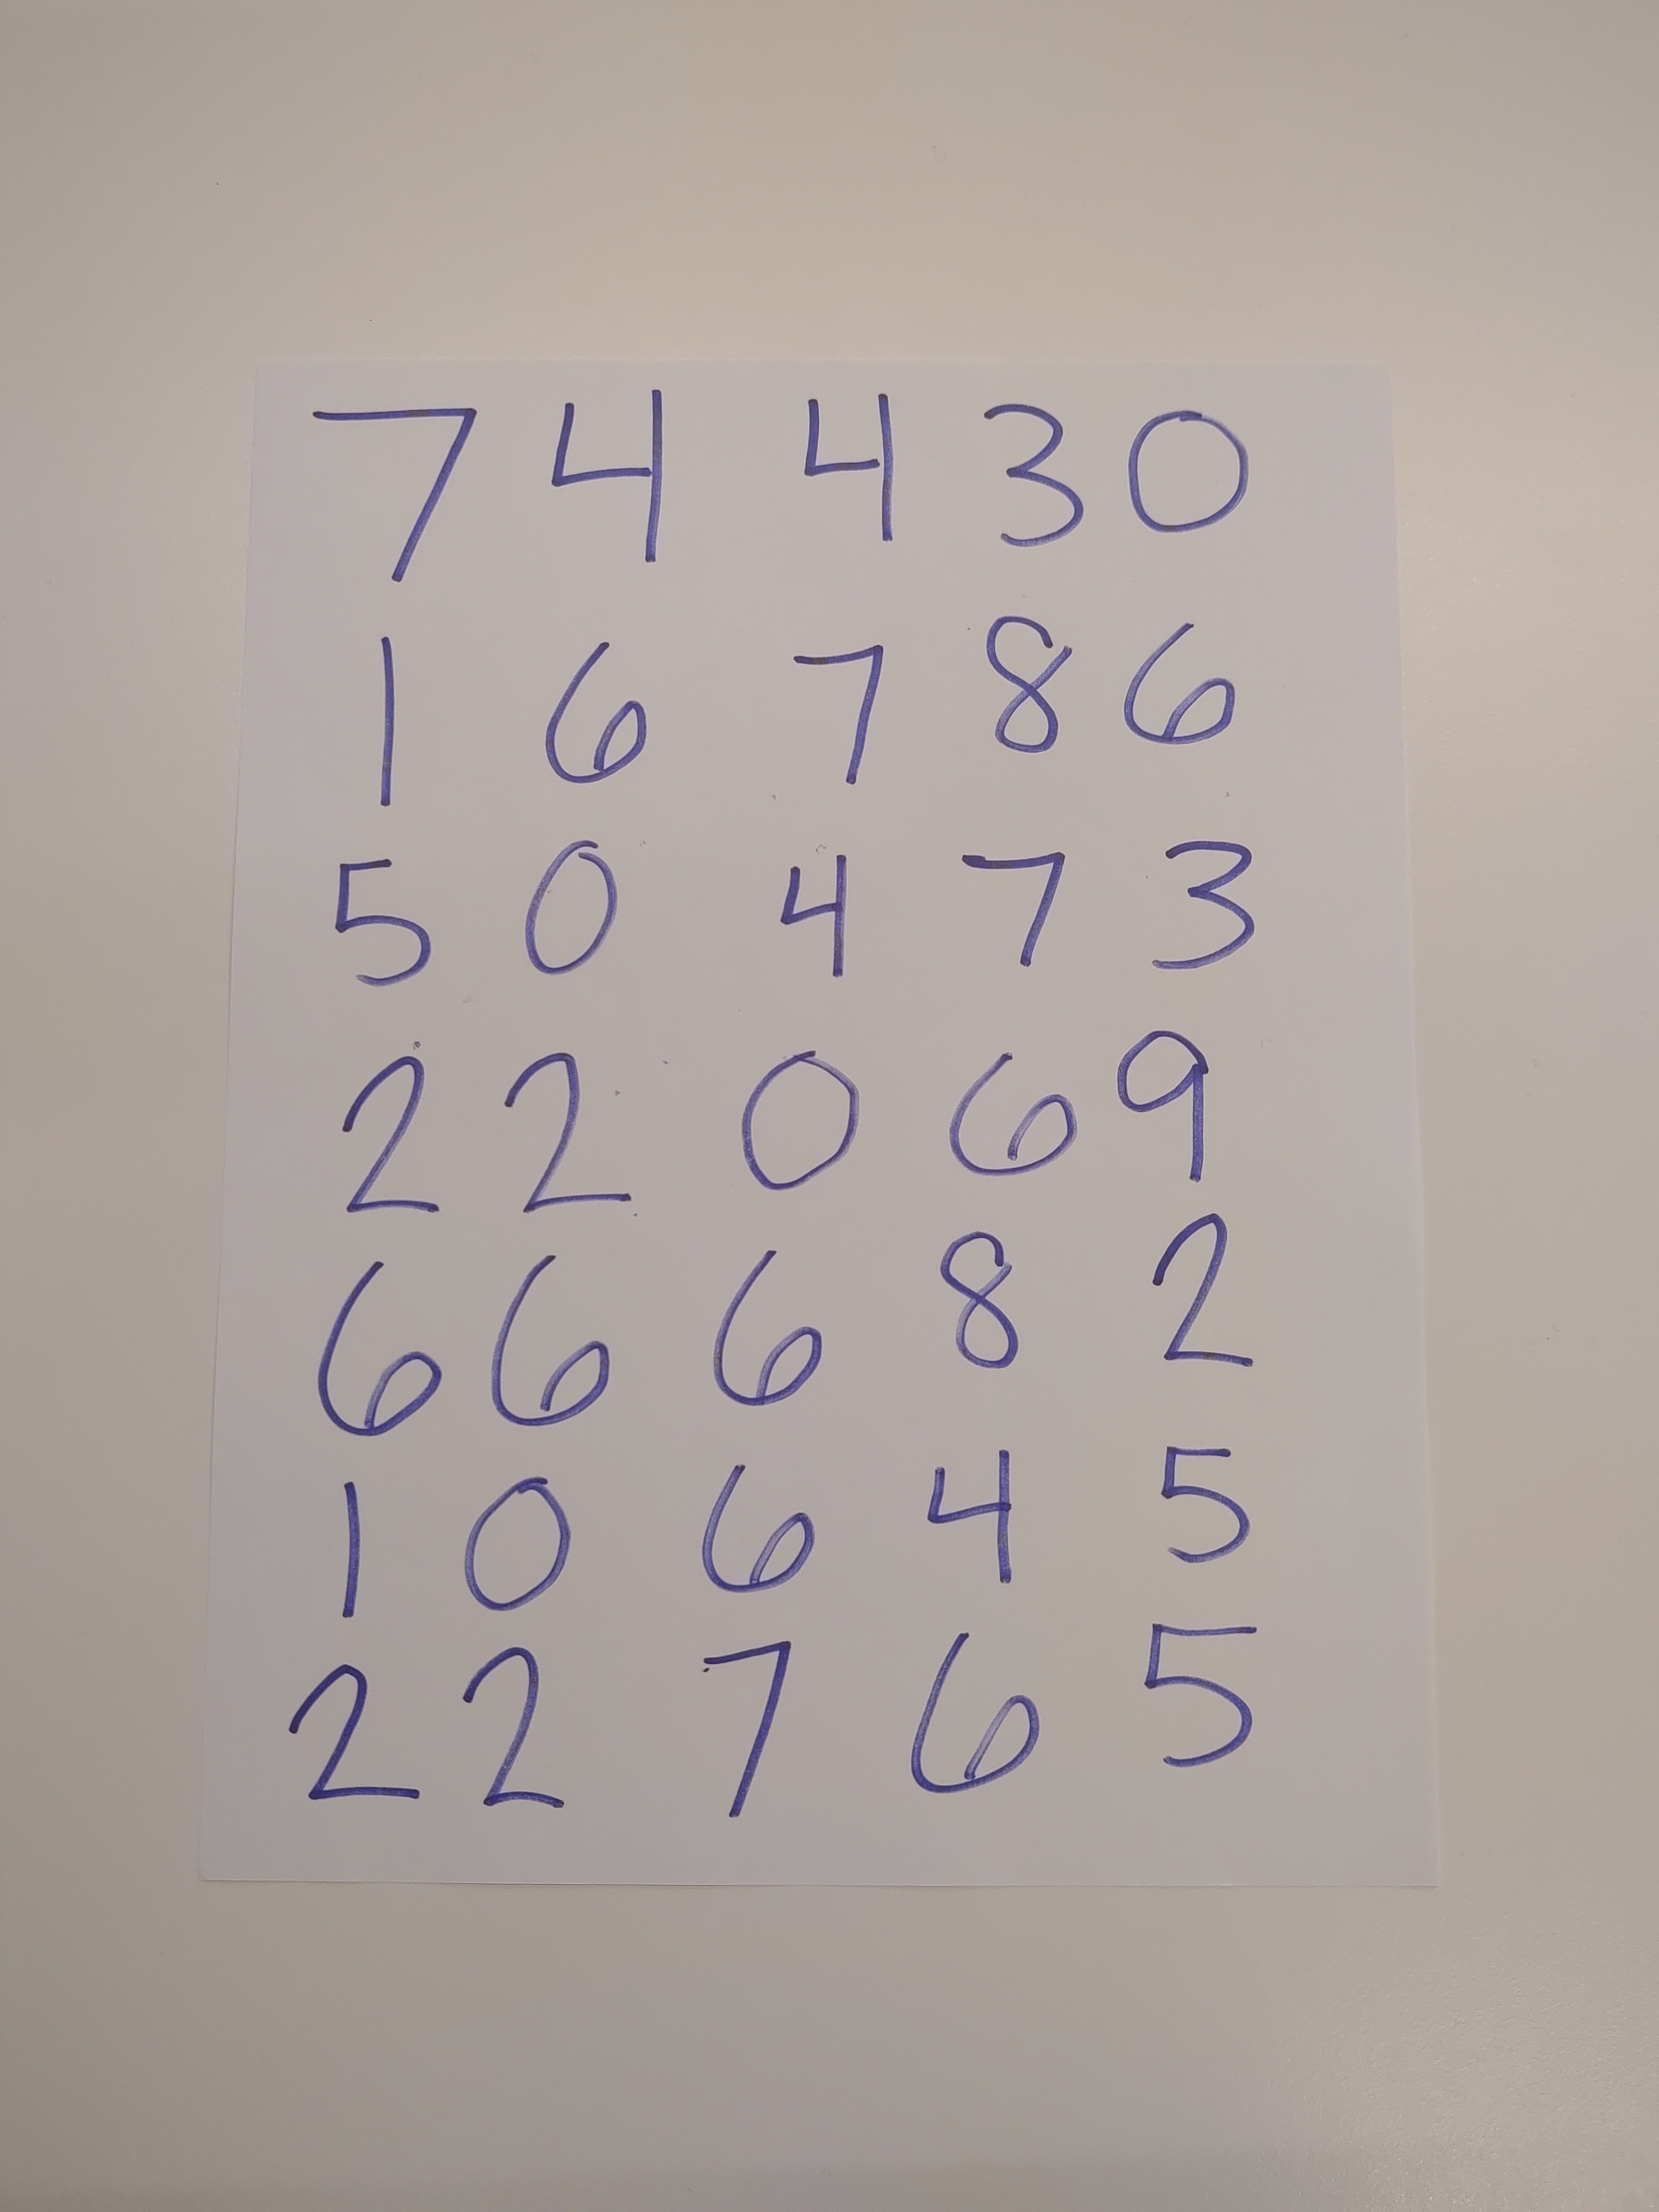 7 4 4 3 0
1 6 7 8 6
5 0 4 7 3
2 2 0 6 9
6 6 6 8 2
1 0 6 4 5
2 2 7 6 5